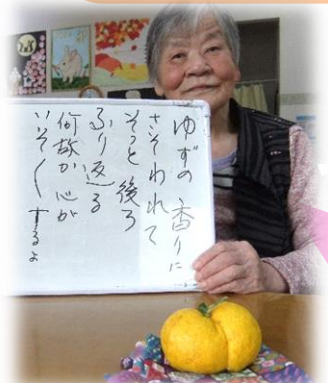 ゆずの香りに
さそわれて
そっと後ろ
ふり返る
何故か心が
いそいそするよ